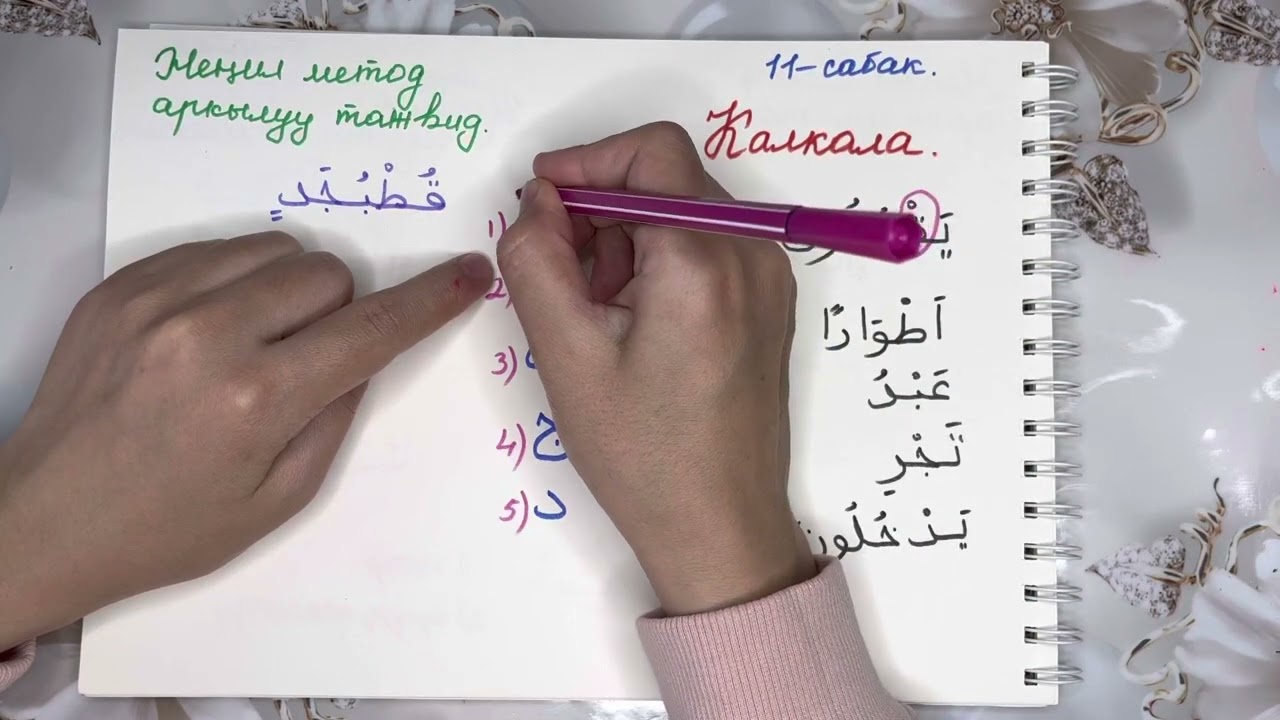 Жеңил метод
аркылуу тажвид.
11-сабак.
Калкала.
قُطْبُجَدٍ
1)
2)
3)
4) ج
5) د
اَطْوَارًا
عَبْدُ
تَجْرِ
يَدْخُلُونَ